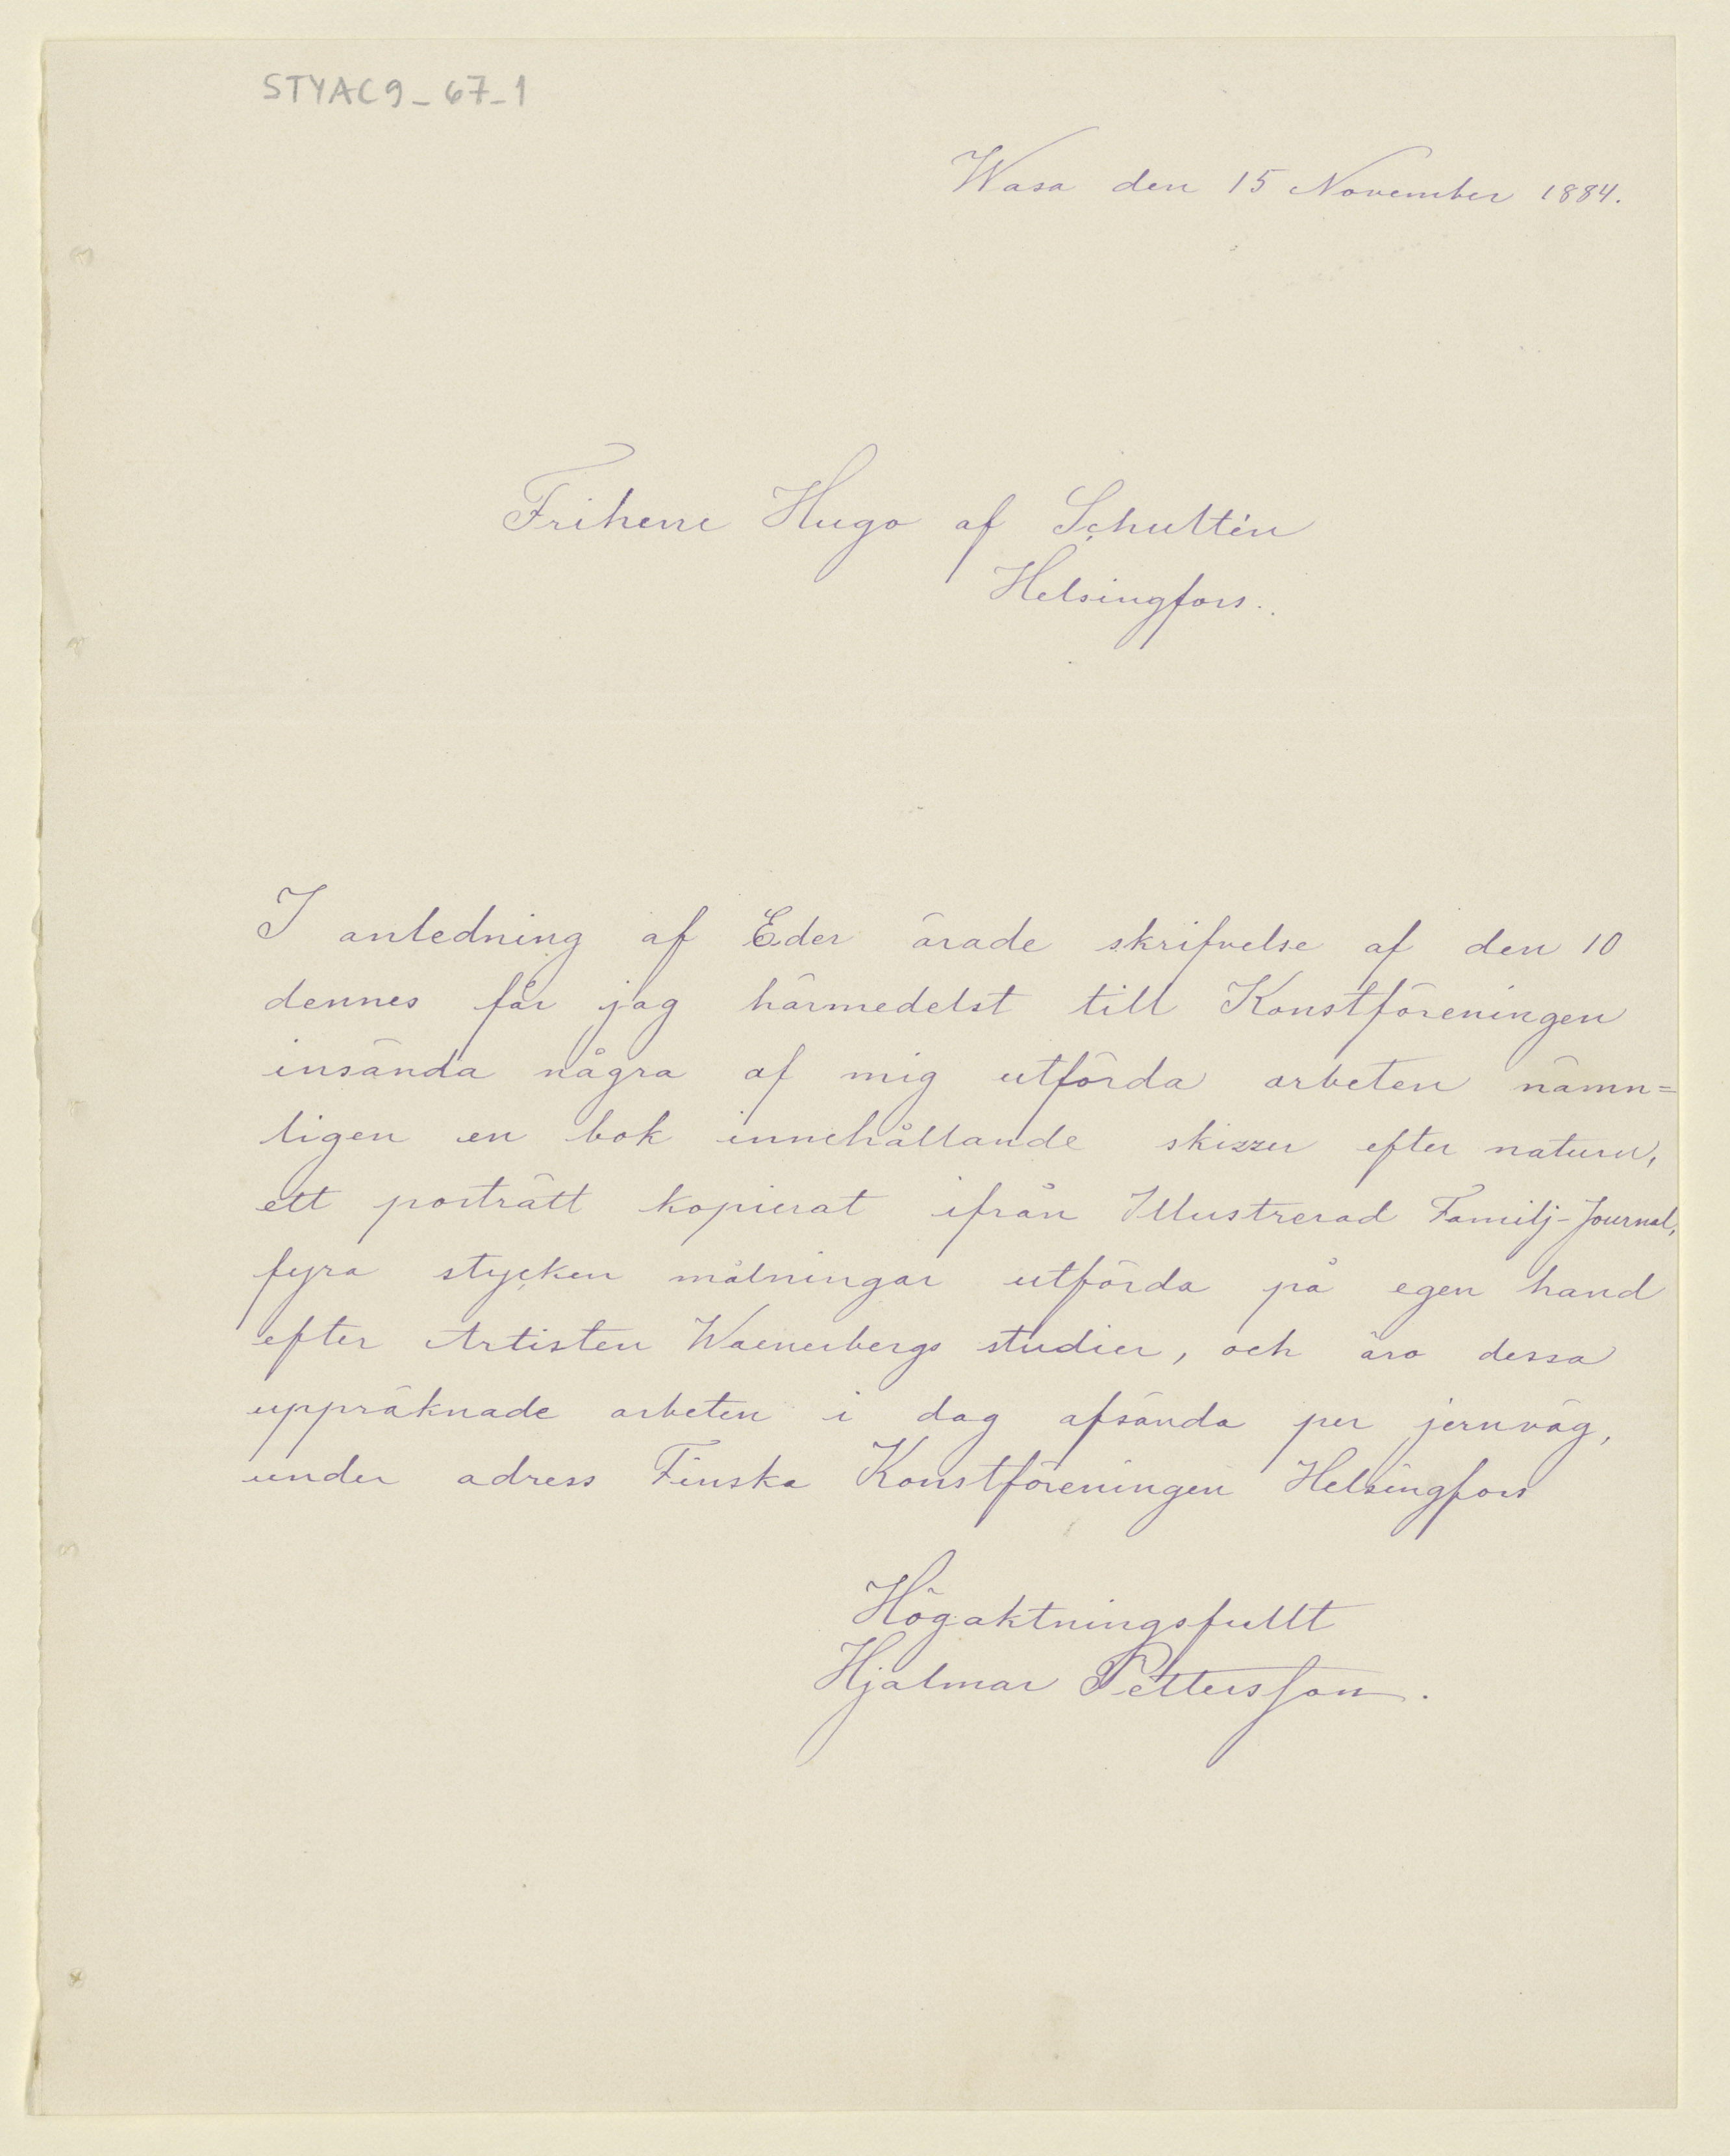 STYAC9_67_1
Wasa den 15 November 1884.
Friherre Hugo af Schultén
Helsingfors.
I anledning af Eder ärade skrifvelse af den 10
dennes får jag härmedelst till Konstföreningen
insända några af mig utförda arbeten nämn=
ligen en bok innehållande skizzer efter naturen,
ett porträtt kopierat ifrån Illustrerad Familj-Journal,
fyra stycken målningar utförda på egen hand
efter Artisten Waenerbergs studier, och äro dessa
uppräknade arbeten i dag afsända per jernväg,
under adress Finska Konstföreningen Helsingfors
Högaktningsfullt
Hjalmar Pettersson.